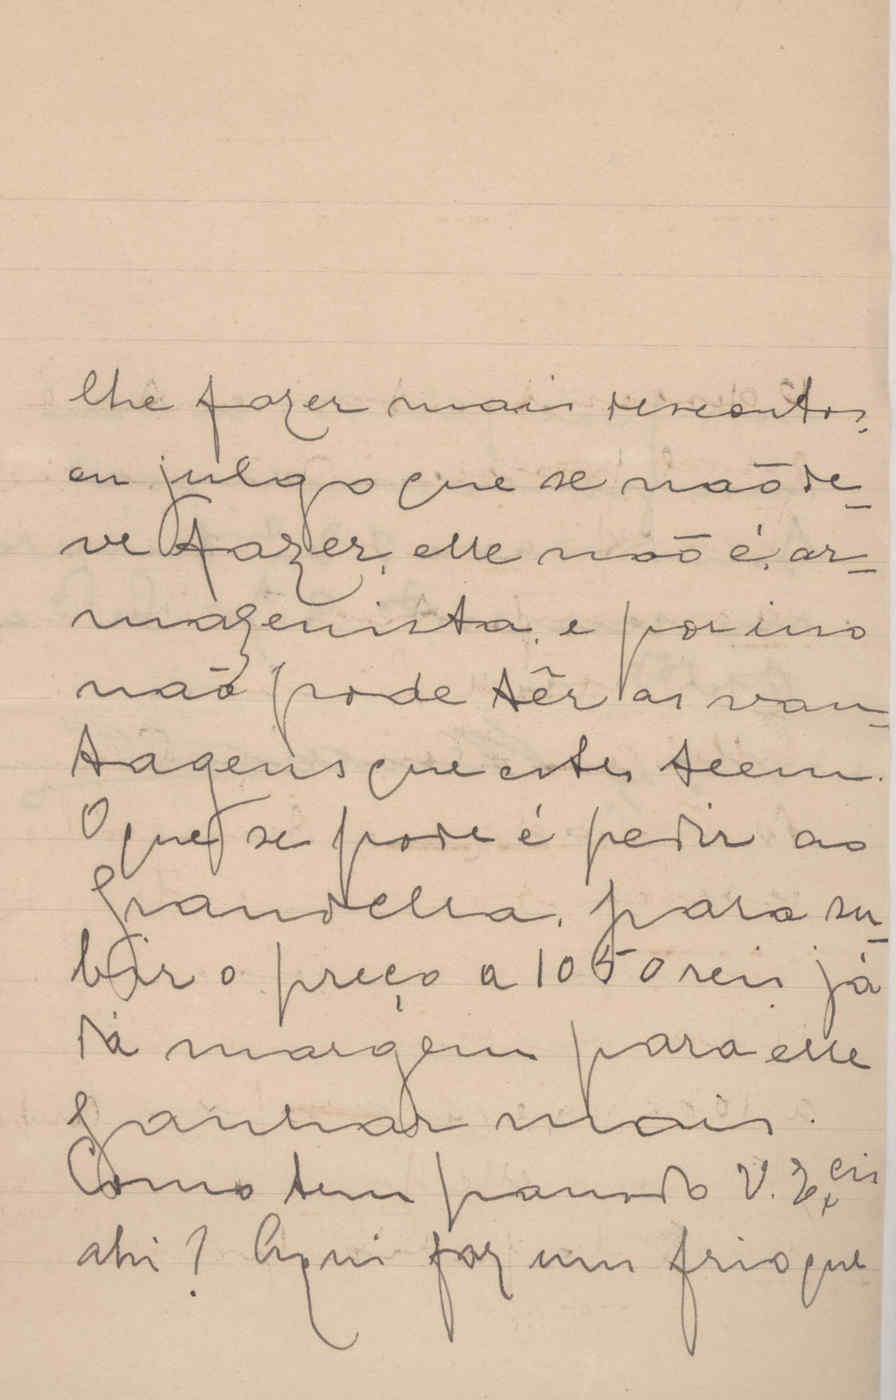 lhe fazer mais descontos,
eu julgo que se não de-
ve fazer, elle não é, ar-
mazenista, e por isso
não pode têr as van-
tagens que estes teem.
O que se pode é pedir ao
Grandella, para su-
bir o preço a 1050 reis já
dá margem para elle
ganhar mais.
Como tem passado V. Ex.cis
ahi? Aqui faz um frio que